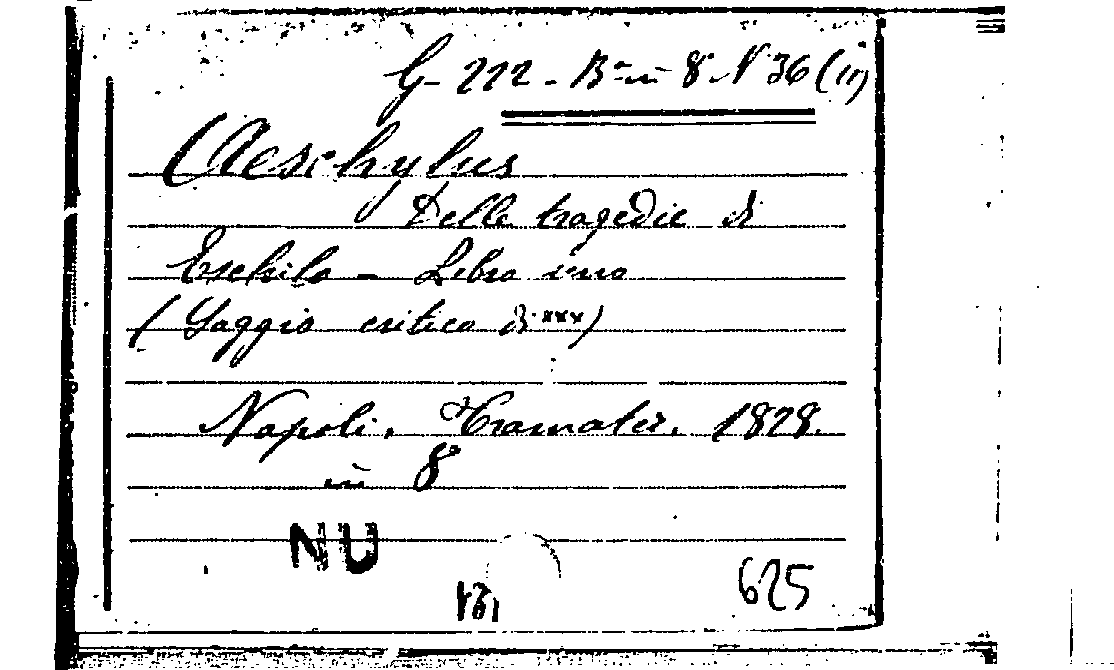 G- 222 - Bª in 8º N 36 (11)
Aeschylus
Delle tragedie di
Eschilo - Libro uno
(Saggio critico di xxx)
Napoli. Tramater. 1828.
in 8º
NU
625